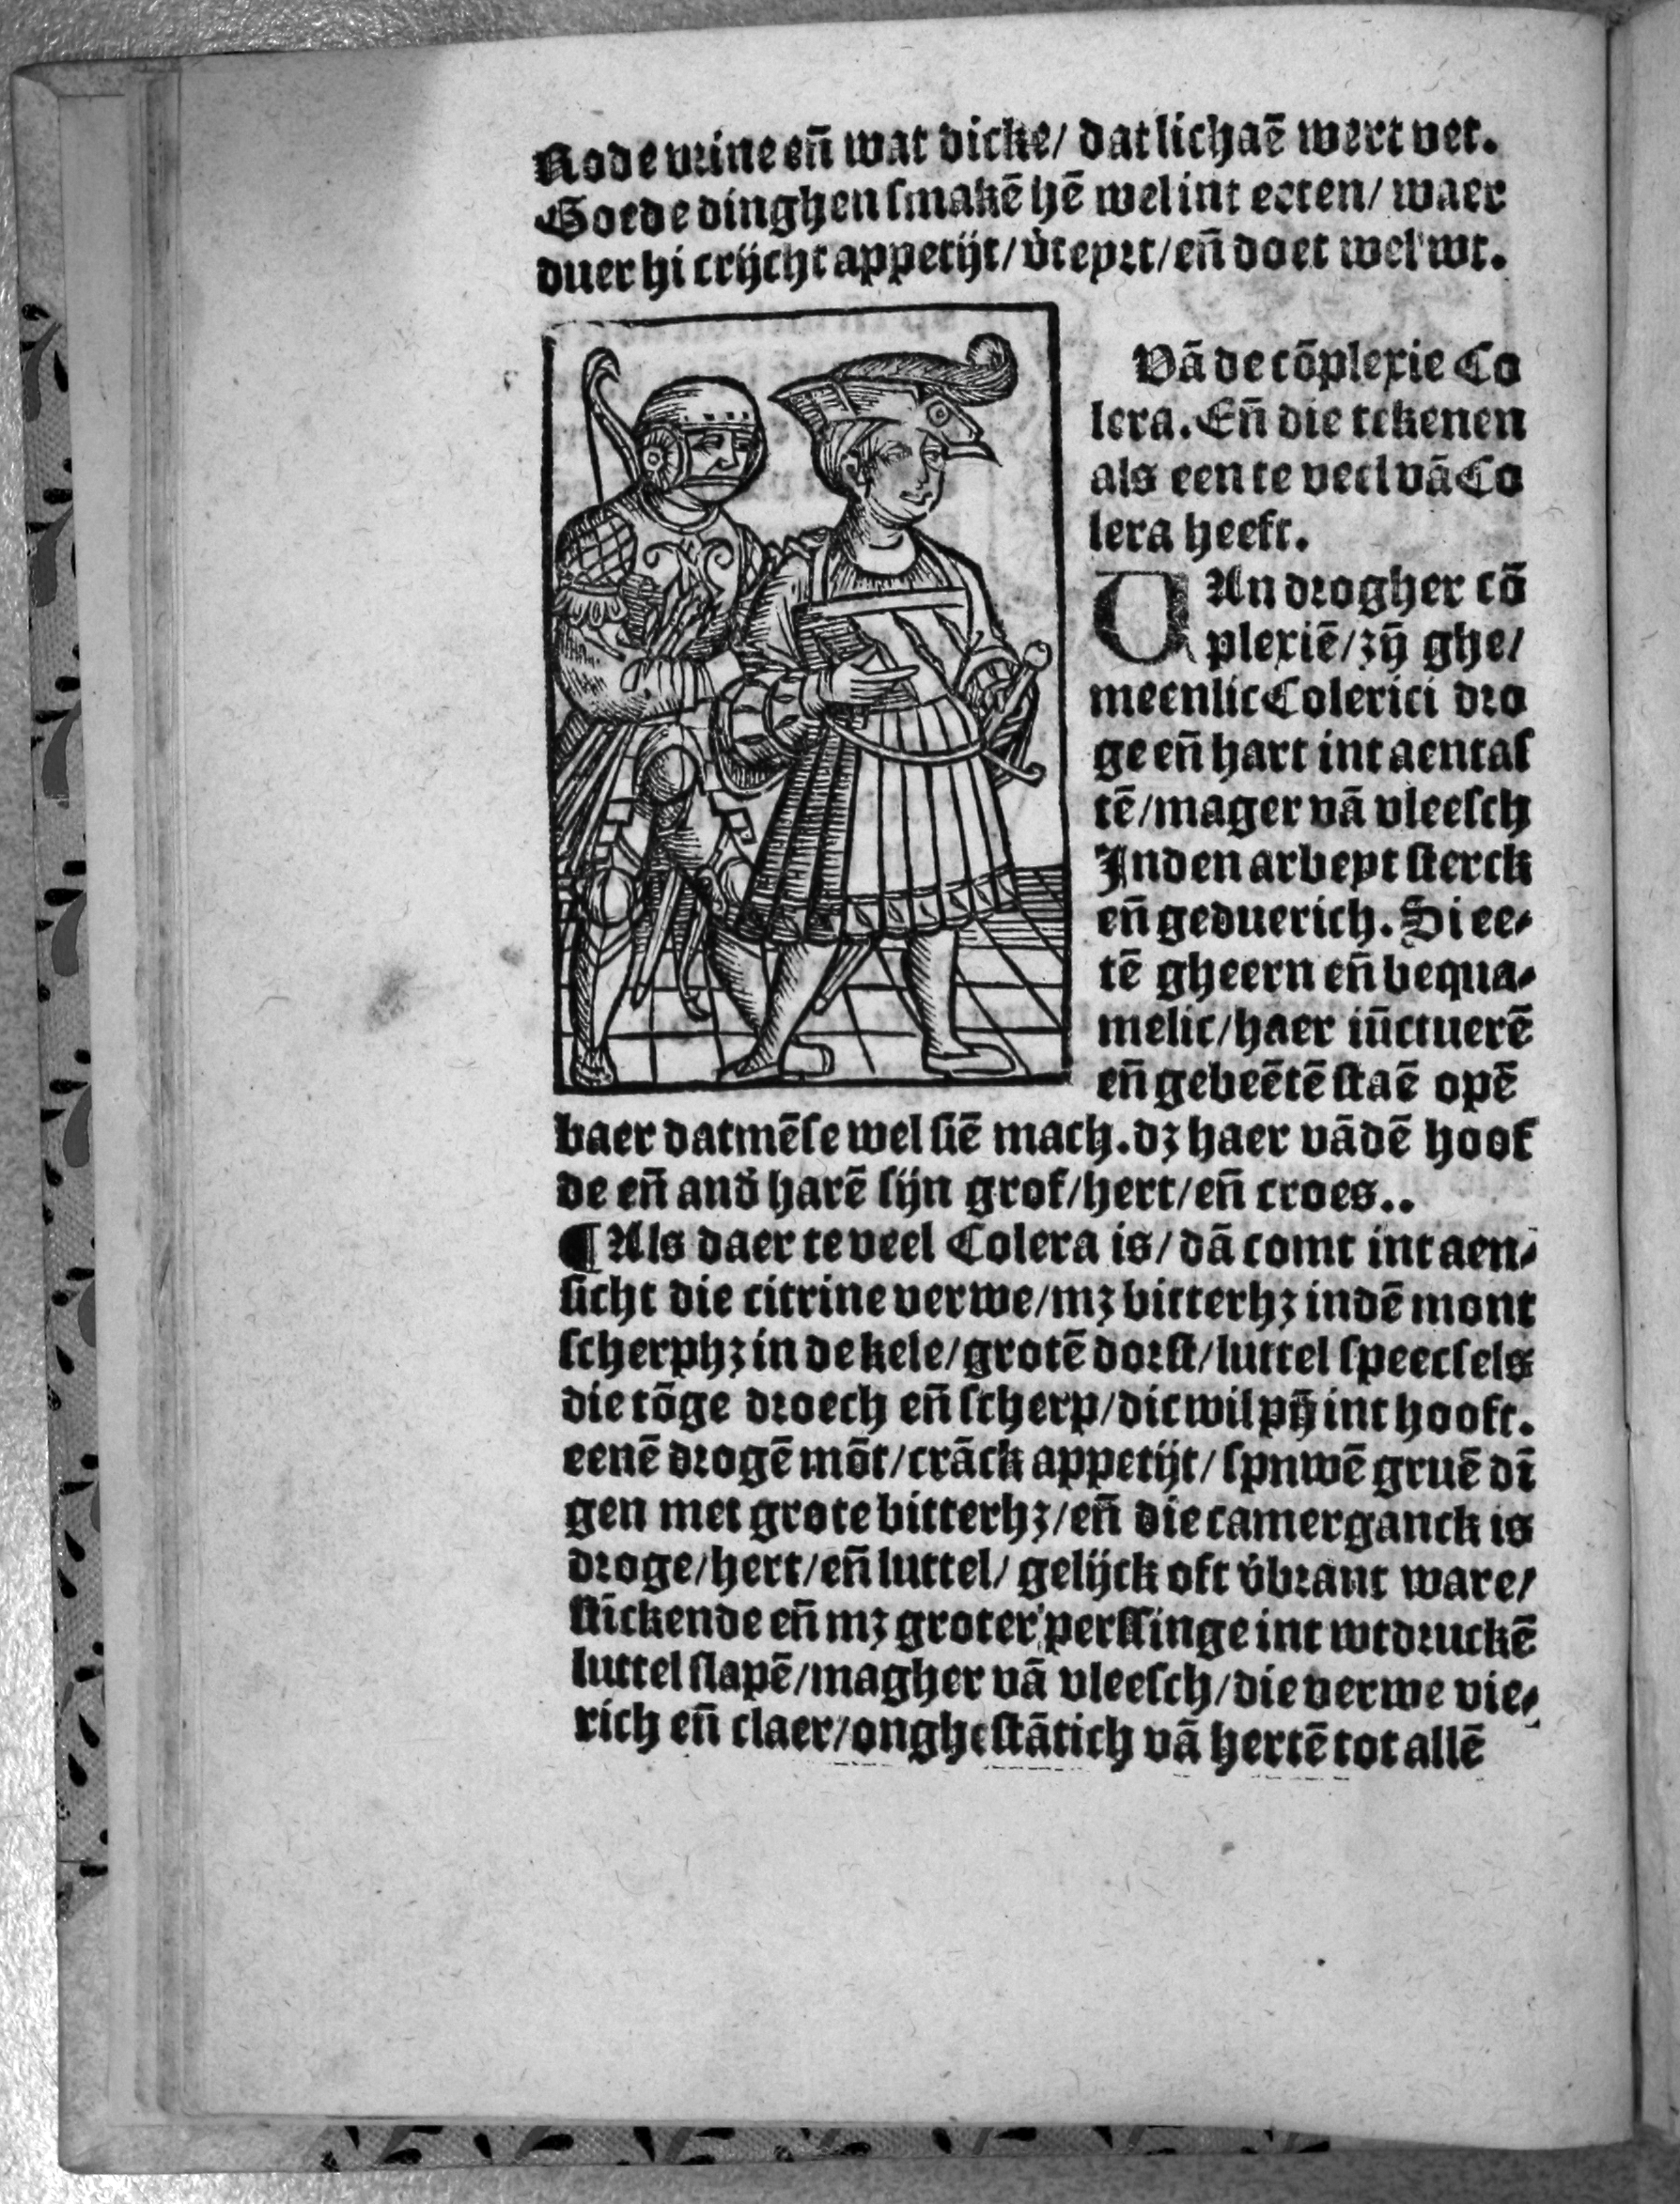 Rode vrine eñ wat dicke/ dat lichaē wert vet.
Goede dinghen smakē hē wel int eeten/ waer
duer hi crijcht appetijt/ v̄teyrt/ eñ doet wel wt.
Vā de cōplexie Co
lera. Eñ die tekenen
als een te veel vā Co
lera heeft.
VAn drogher cō
plexiē/ zȳ ghe/
meenlic Colerici dro
ge eñ hart int aentas
tē/ mager vā vleesch
Inden arbeyt sterck
eñ geduerich. Si ee-
tē gheern eñ bequa-
melic/ haer iūctuerē
eñ gebeētē staē opē
baer datmēse wel siē mach. dz haer vādē hoof
de eñ and̄ harē sijn grof/ hert/ eñ croes..
¶ Als daer te veel Colera is/ dā comt int aen-
sicht die citrine verwe/ mz bitterhz indē mont
scherphz in de kele/ grotē dorst/ luttel speecsels
die tōge droech eñ scherp/ dicwil pȳ int hooft.
eenē drogē mōt/ crāck appetijt/ spnwē gruē dī
gen met grote bitterhz/ eñ die camerganck is
droge/ hert/ eñ luttel/ gelijck oft v̄brant ware/
stickende eñ mz groter perssinge int wtdruckē
luttel slapē/ magher vā vleesch/ die verwe vie-
rich eñ claer/ onghestātich vā hertē tot allē